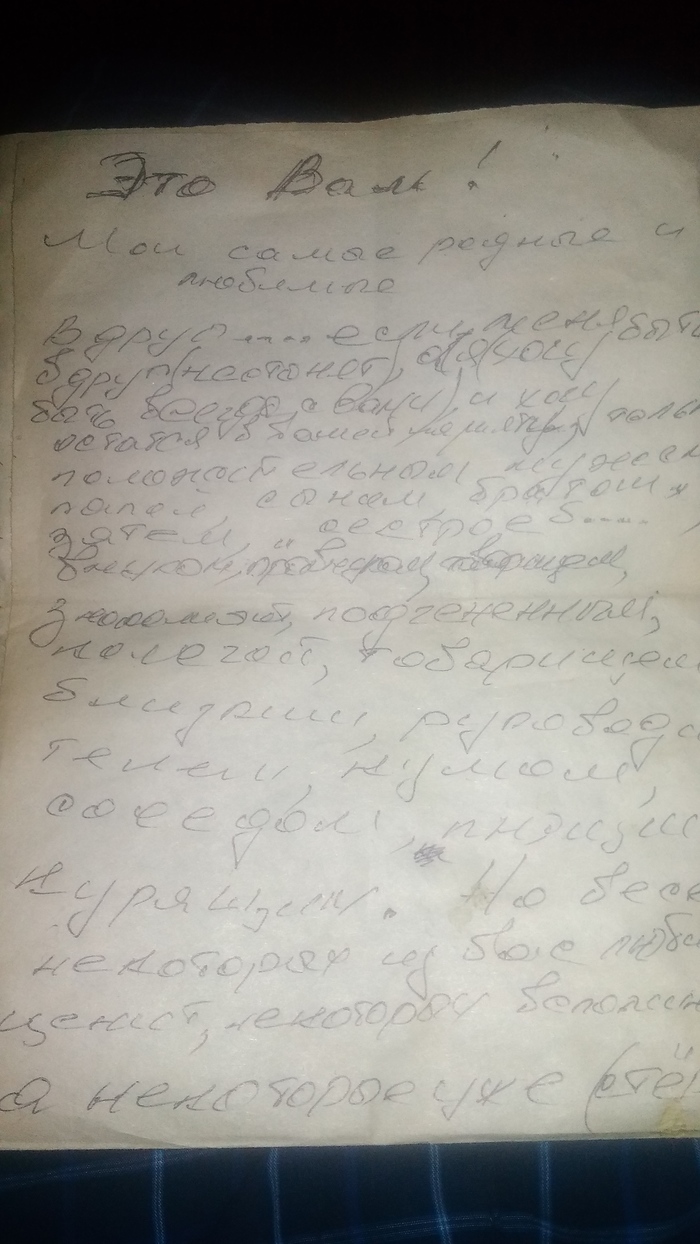 Это Вам !
Мои самые родные и
любимые
Вдруг.....если меня
вдруг(не станет), а я хочу
быть всегда с вами и хочу
остатся в вашей памяти
положительным мужем
папой, сыном, братом
зятем, сестрое б.....,
внуком,
знакомым, подчененным,
колегой, товарищем
близким, руковод
телем, кумом,
соседом,
курящим. Но
некоторых из вас люби
ценит, некоторых вспомин
а некоторые уже (отё